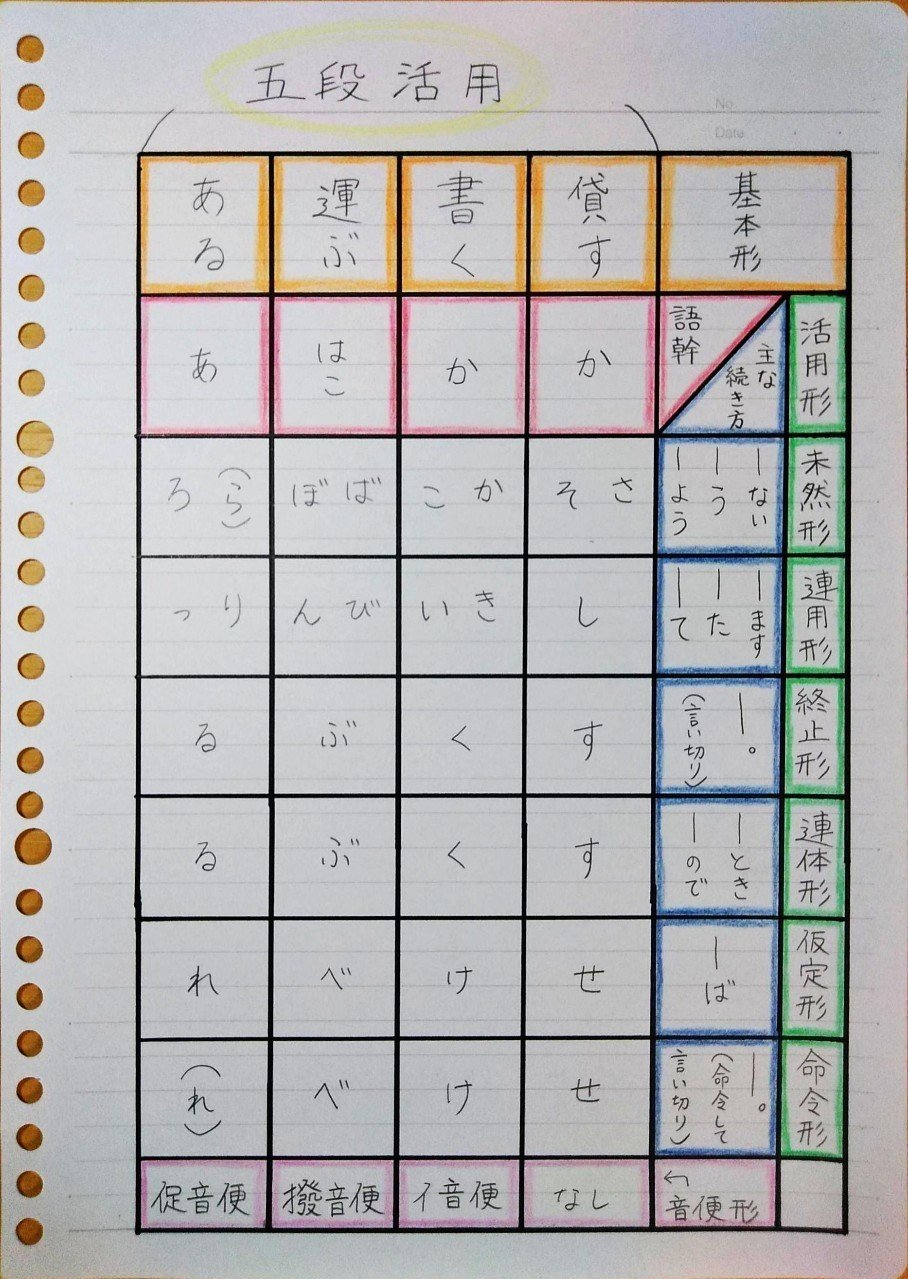 五段活用
No.
Date
基本形
活用形
未然形
連用形
終止形
連体形
仮定形
命令形
主な
続き方
語幹
ーない
ーう
ーよう
ーます
ーた
ーて
ー。
(言い切り)
ーとき
ーので
ーば
ー。
(命令して
言い切り)
↰
音便形
貸す
か
さ
そ
し
す
す
せ
せ
なし
書く
か
か
こ
き
い
く
く
け
け
イ音便
運ぶ
はこ
ば
ぼ
び
ん
ぶ
ぶ
べ
べ
撥音便
ある
あ
(ら)
ろ
り
っ
る
る
れ
(れ)
促音便